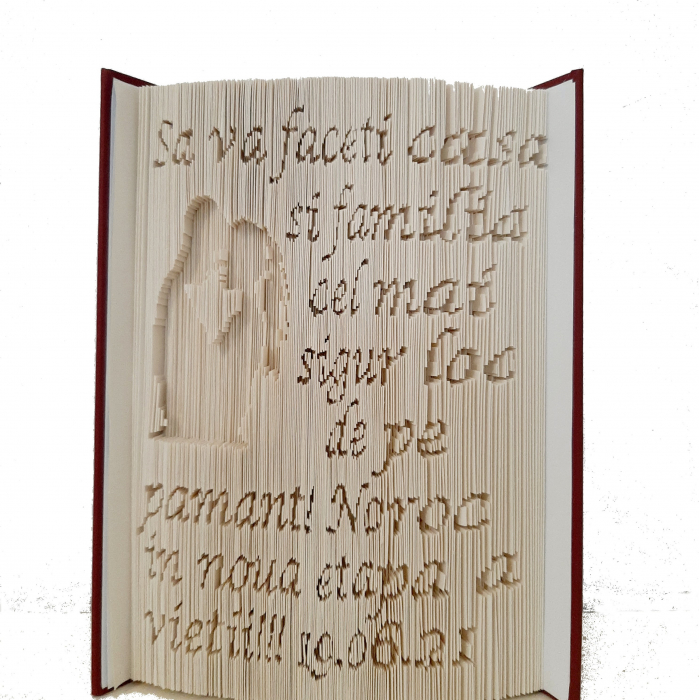 Sa va faceti casa
si familia
cel mai
sigur loc
de pe
pamant! Noroc
in noua etapa a
vietii!!!